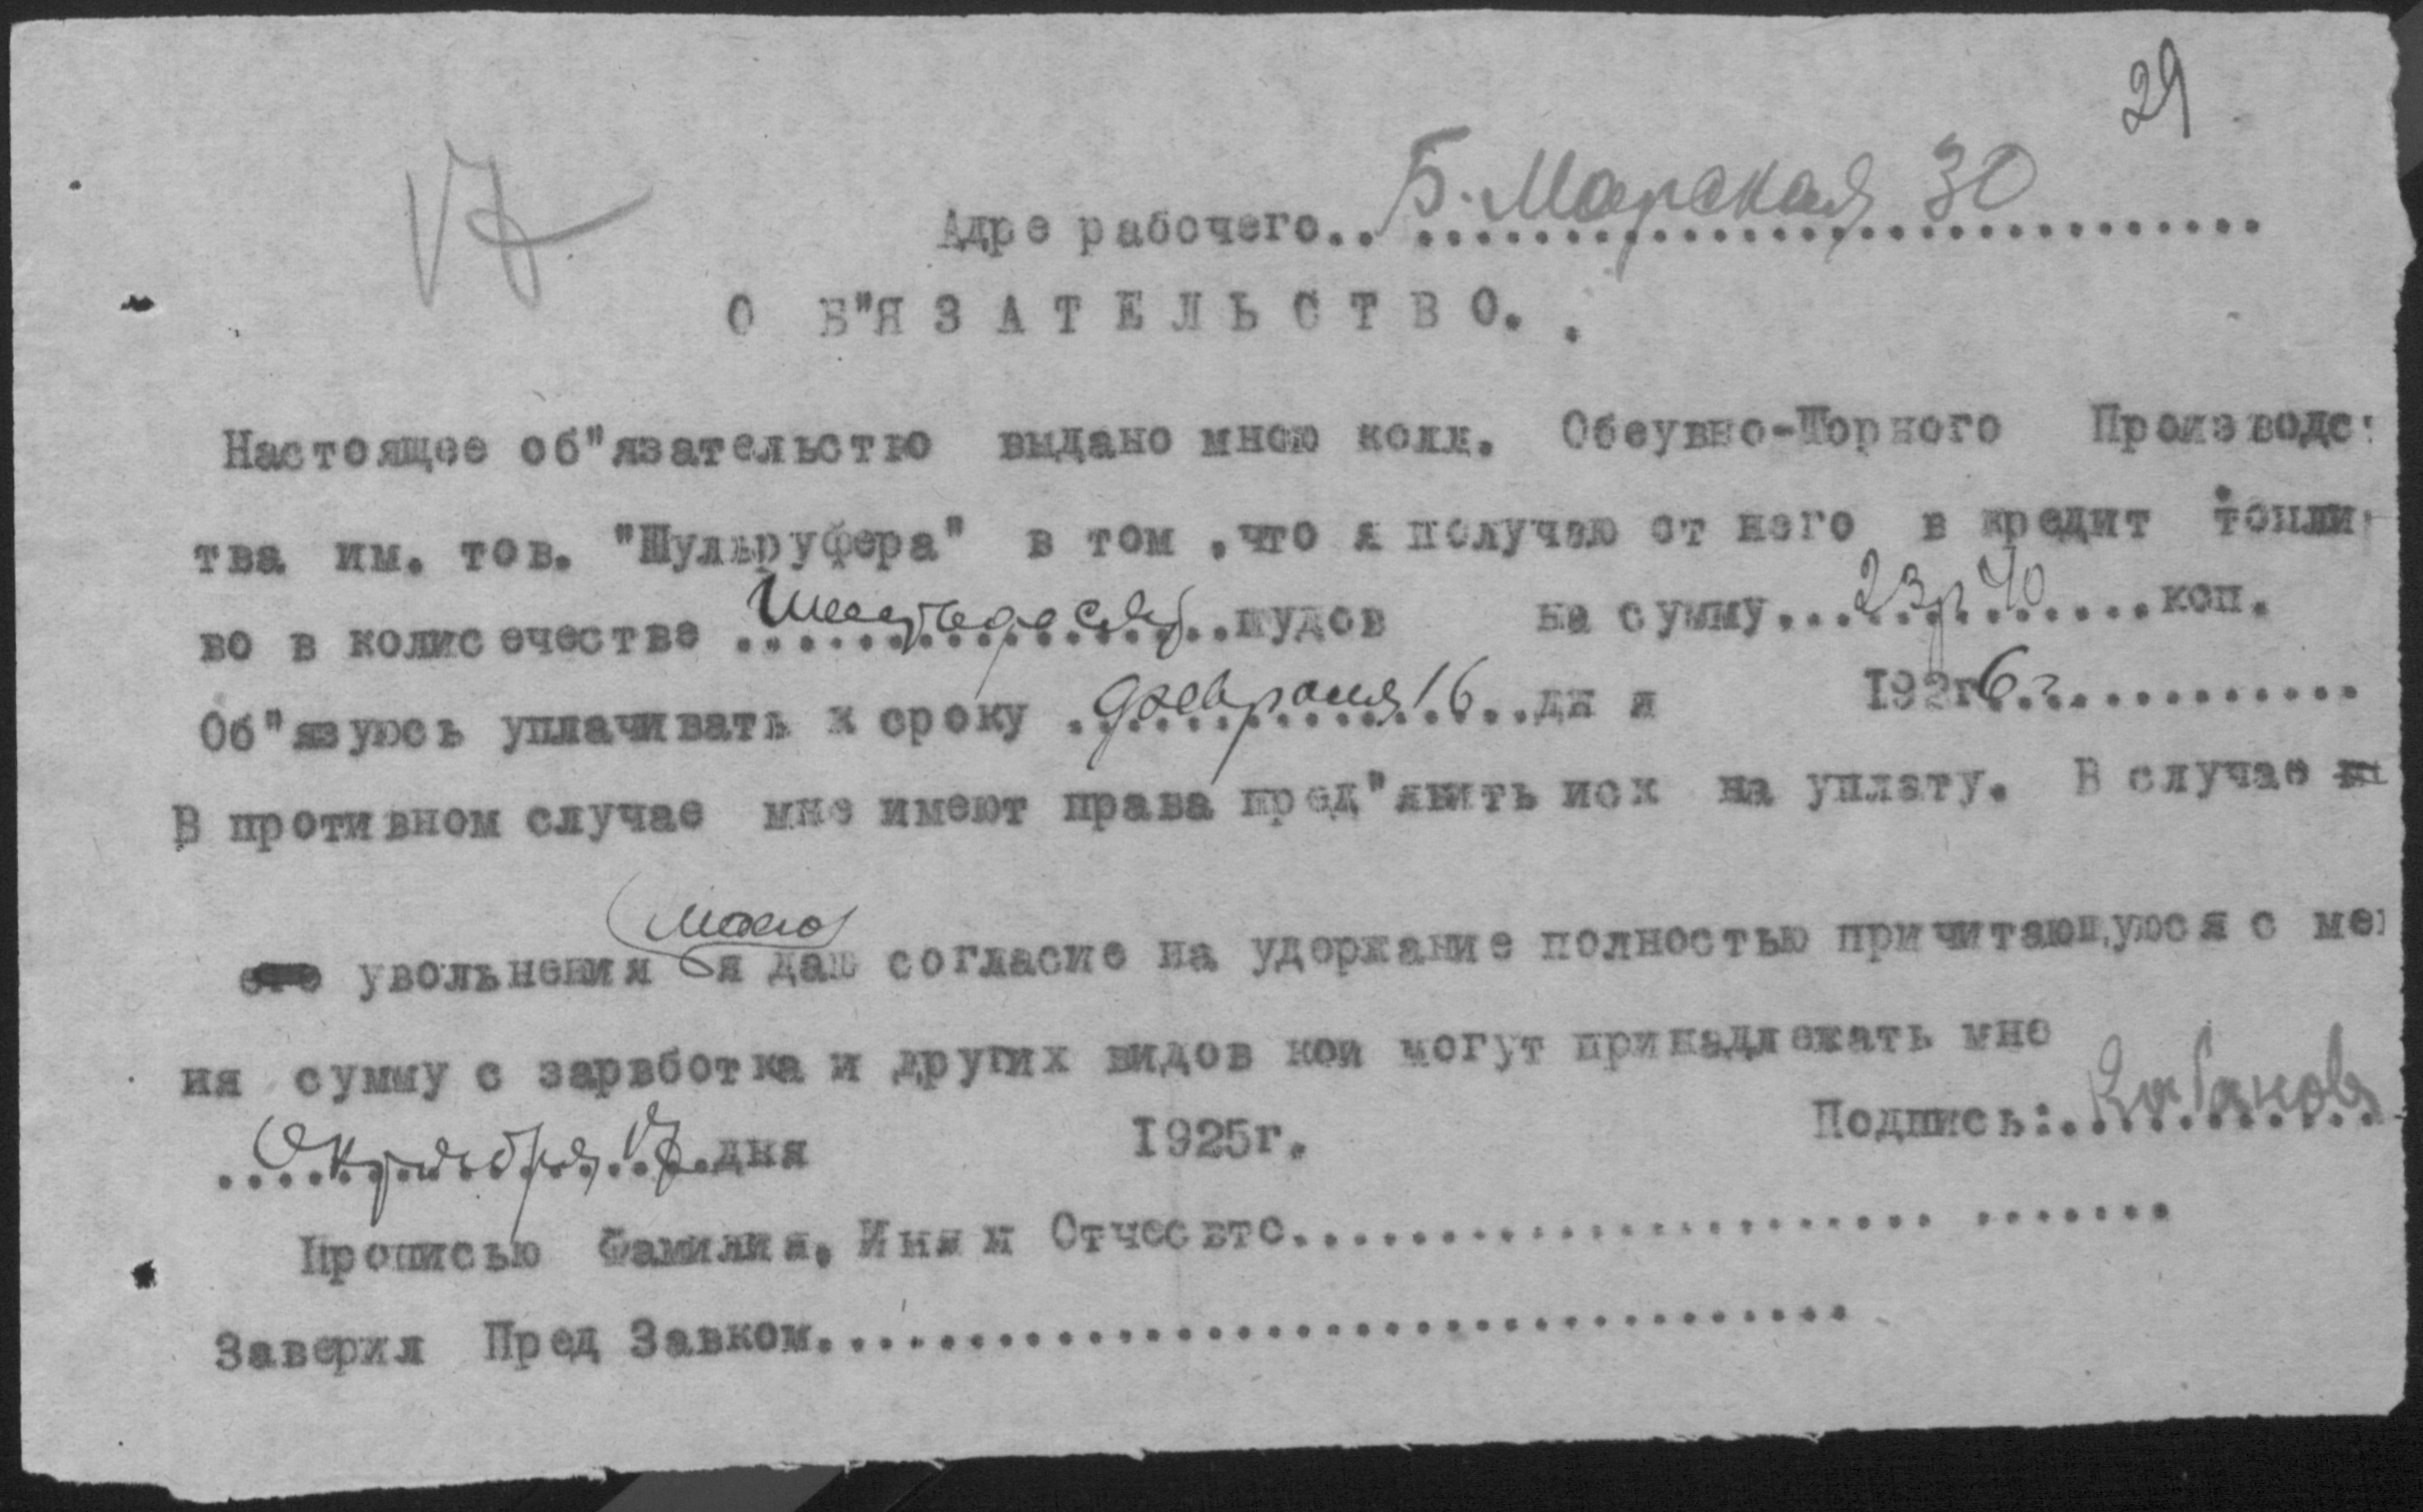 29
17
Адре рабочего.. Б. Морская 30
О Б"Я З А Т Е Л Ь С Т В О. .
Настоящее об"язательстю выдано мною колл. Обеувно-Шорного Производс
тва им. тов. "Шульруфера" в том ,что я получаю от него в кредит топли
во в колисечестве Шестьдесят пудов на сумму 23р 40 коп.
Об"язуюсь уплачивать к сроку февраля 16 дня 1926 г.
В противном случае мне имеют права пред"явить иск на уплату. В случае
моего
увольнения я даю согласие на удержание полностью причитающуюся с ме
ня сумму с зарвботка и других видов кои могут принадлежать мне
Октября 17 дня 1925г. Подпись: Кабанов
Прописью Фамилия, Имя и Отчесвто
Заверил Пред Завком